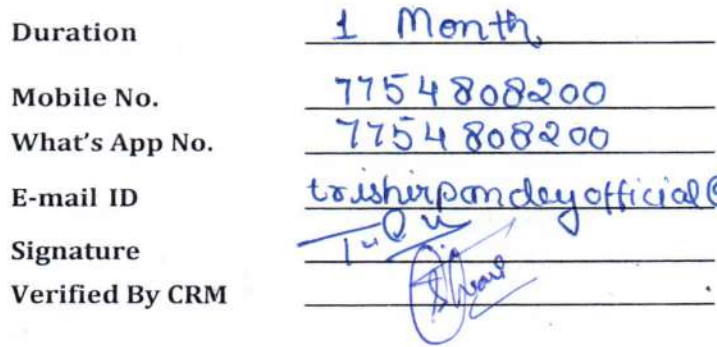 Duration 1 Month
Mobile No. 7754808200
What's App No. 7754808200
E-mail ID trishirpandeyofficial@
Signature
Verified By CRM